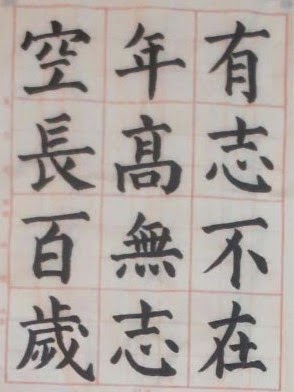 有志不在
年髙無志
空長百歲